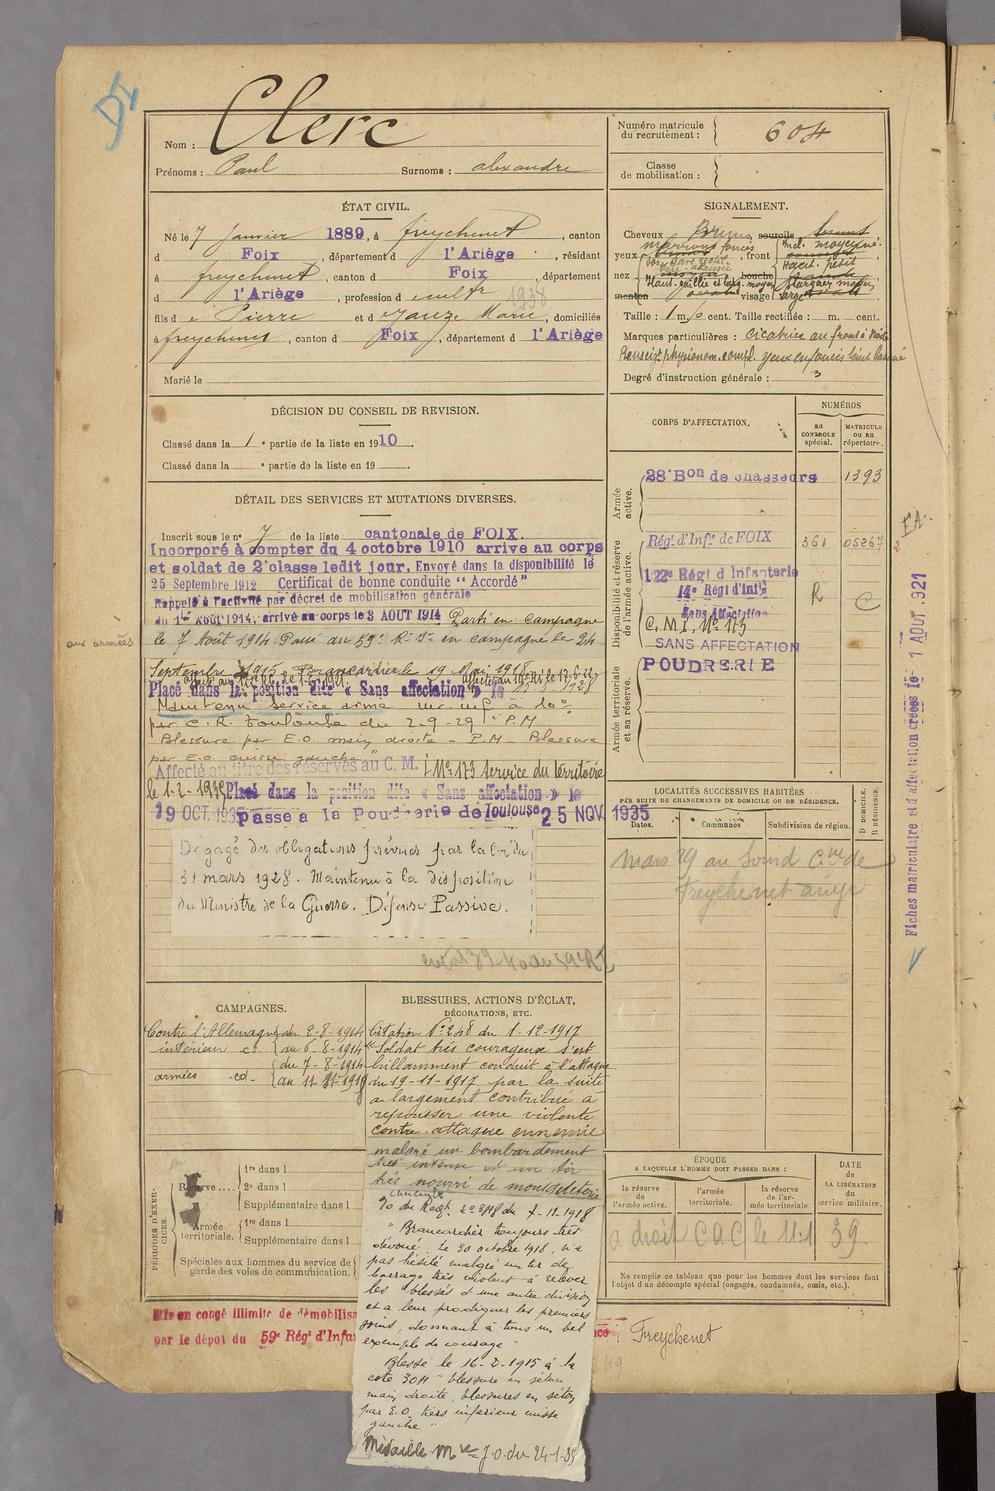 DI
Clerc
Nom :
Prénoms : Paul Surnoms : alexandre
ÉTAT CIVIL.
Né le 7 Janvier 1889, à freychenet, canton
d Foix, département d l'Ariège, résidant
à freychenet, canton d Foix, département
d l'Ariège, profession d cultr 1938
fils de Pierre et d Marie, domiciliés
à freychenet, canton d Foix, département d l'Ariège
Marié le
DÉCISION DU CONSEIL DE REVISION.
Classé dans la 1e partie de la liste en 1910.
Classé dans la e partie de la liste en 19
DÉTAIL DES SERVICES ET MUTATIONS DIVERSES.
Inscrit sous le no 7 de la liste cantonale de FOIX.
Incorporé à compter du 4 octobre 1910 arrive au corps
et soldat de 2e classe ledit jour. Envoyé dans la disponibilité le
25 Septembre 1912 Certificat de bonne conduite "Accordé"
Rappelé à l'activité par décret de mobilisation générale
du 1er Août 1914, arrivé au corps le 3 AOUT 1914 Parti en campagne
aux armées
le 7 Août 1914. Passé au 59e R. Ie en campagne le 24
Septembre 1915. Brancardier le 19 Mai 1918
Placé dans la position dite « Sans affectation » le 15-5-1928
Maintenu service armé à 10%
par C. R. Toulouse du 2-9-29 "P.M
Blessure par E.O. main droite - P.M - Blessure
par E.O. cuisse gauche"
Affecté au titre des réserves au C. M. I No 173 service du territoire
le 1-2-193 Placé dans la position dite « Sans affectation » le
19 OCT. 193 passe a la Poudrerie de Toulouse 25 NOV. 1935
Dégagé des obligations prévues par la loi du
31 mars 1928. Maintenu à la disposition
du Ministre de la Guerre. Défense Passive.
CAMPAGNES.
Contre l'Allemagne du 2-8-1914
intérieur c. au 6-8-1914
du 7-8-1914
armées cd. au 11-1919
BLESSURES, ACTIONS D'ÉCLAT,
DÉCORATIONS, ETC.
Citation No 248 du 1-12-1917
"Soldat très courageux s'est
brillamment conduit à l'attaque
du 19-11-1917 par la suite
a largement contribué à
repousser une violente
contre-attaque ennemie
malgré un bombardement
très intense et un tir
très nourri de mousqueterie
O du Régt. No 248 du 7-11-1918
"Brancardier toujours très
dévoué. Le 30 octobre 1918, n'a
pas hésité malgré un tir de
barrage très violent à relever
les blessés d'une autre division
et a leur prodiguer les premiers
soins, donnant à tous un bel
exemple de courage"
Blessé le 16-2-1915 à la
cote 304 "blessure en séton
main droite, blessures en séton
par E.O. tiers inférieur cuisse
gauche"
Médaille Mre J.O. du 24-1-35
PÉRIODES D'EXERCICES.
Réserve.... 1re dans l
2e dans l
Supplémentaire dans l
Armée territoriale. 1re dans l
Supplémentaire dans l
Spéciales aux hommes du service de garde des voies de communication.
Mis en congé illimité de démobilisa
par le dépot du 59e Régt d'Infa
Freychenet
Numéro matricule du recrutement : 604
Classe de mobilisation :
SIGNALEMENT.
Cheveux Bruns sourcils
yeux marrons foncés, front Incl. moyenne.
nez Haut. petit
menton bouche visage large
Taille : 1 m. cent. Taille rectifiée : m. cent.
Marques particulières : cicatrice au front à droite
Renseigts physionom. compl. yeux enfoncés teint basané
Degré d'instruction générale : 3
CORPS D'AFFECTATION.
NUMÉROS
AU CONTROLE spécial.
MATRICULE OU AU répertoire.
Armée active.
28e Bon de chasseurs 1393
Disponibilité et réserve de l'armée active.
Régt d'Infie de FOIX 361 05267
122e Régt d Infanterie
14e Régt d'Infie R C
Sans Affectation
C. M. I. No 173
SANS AFFECTATION
Armée territoriale et sa réserve.
POUDRERIE
LOCALITÉS SUCCESSIVES HABITÉES
PAR SUITE DE CHANGEMENTS DE DOMICILE OU DE RÉSIDENCE.
Dates. Communes Subdivision de région. D DOMICILE. R RÉSIDENCE.
mars 29 au Sourd Cne de
Freychenet ariège
ÉPOQUE
A LAQUELLE L'HOMME DOIT PASSER DANS :
la réserve de l'armée active.
l'armée territoriale.
la réserve de l'armée territoriale.
DATE DE LA LIBÉRATION du service militaire.
a droit C A C le 11.1 39.
Ne remplir ce tableau que pour les hommes dont les services font
l'objet d'un décompte spécial (engagés, condamnés, omis, etc.).
FA.
Fiches matriculaire et d'affectation créées le 1 AOUT 1921